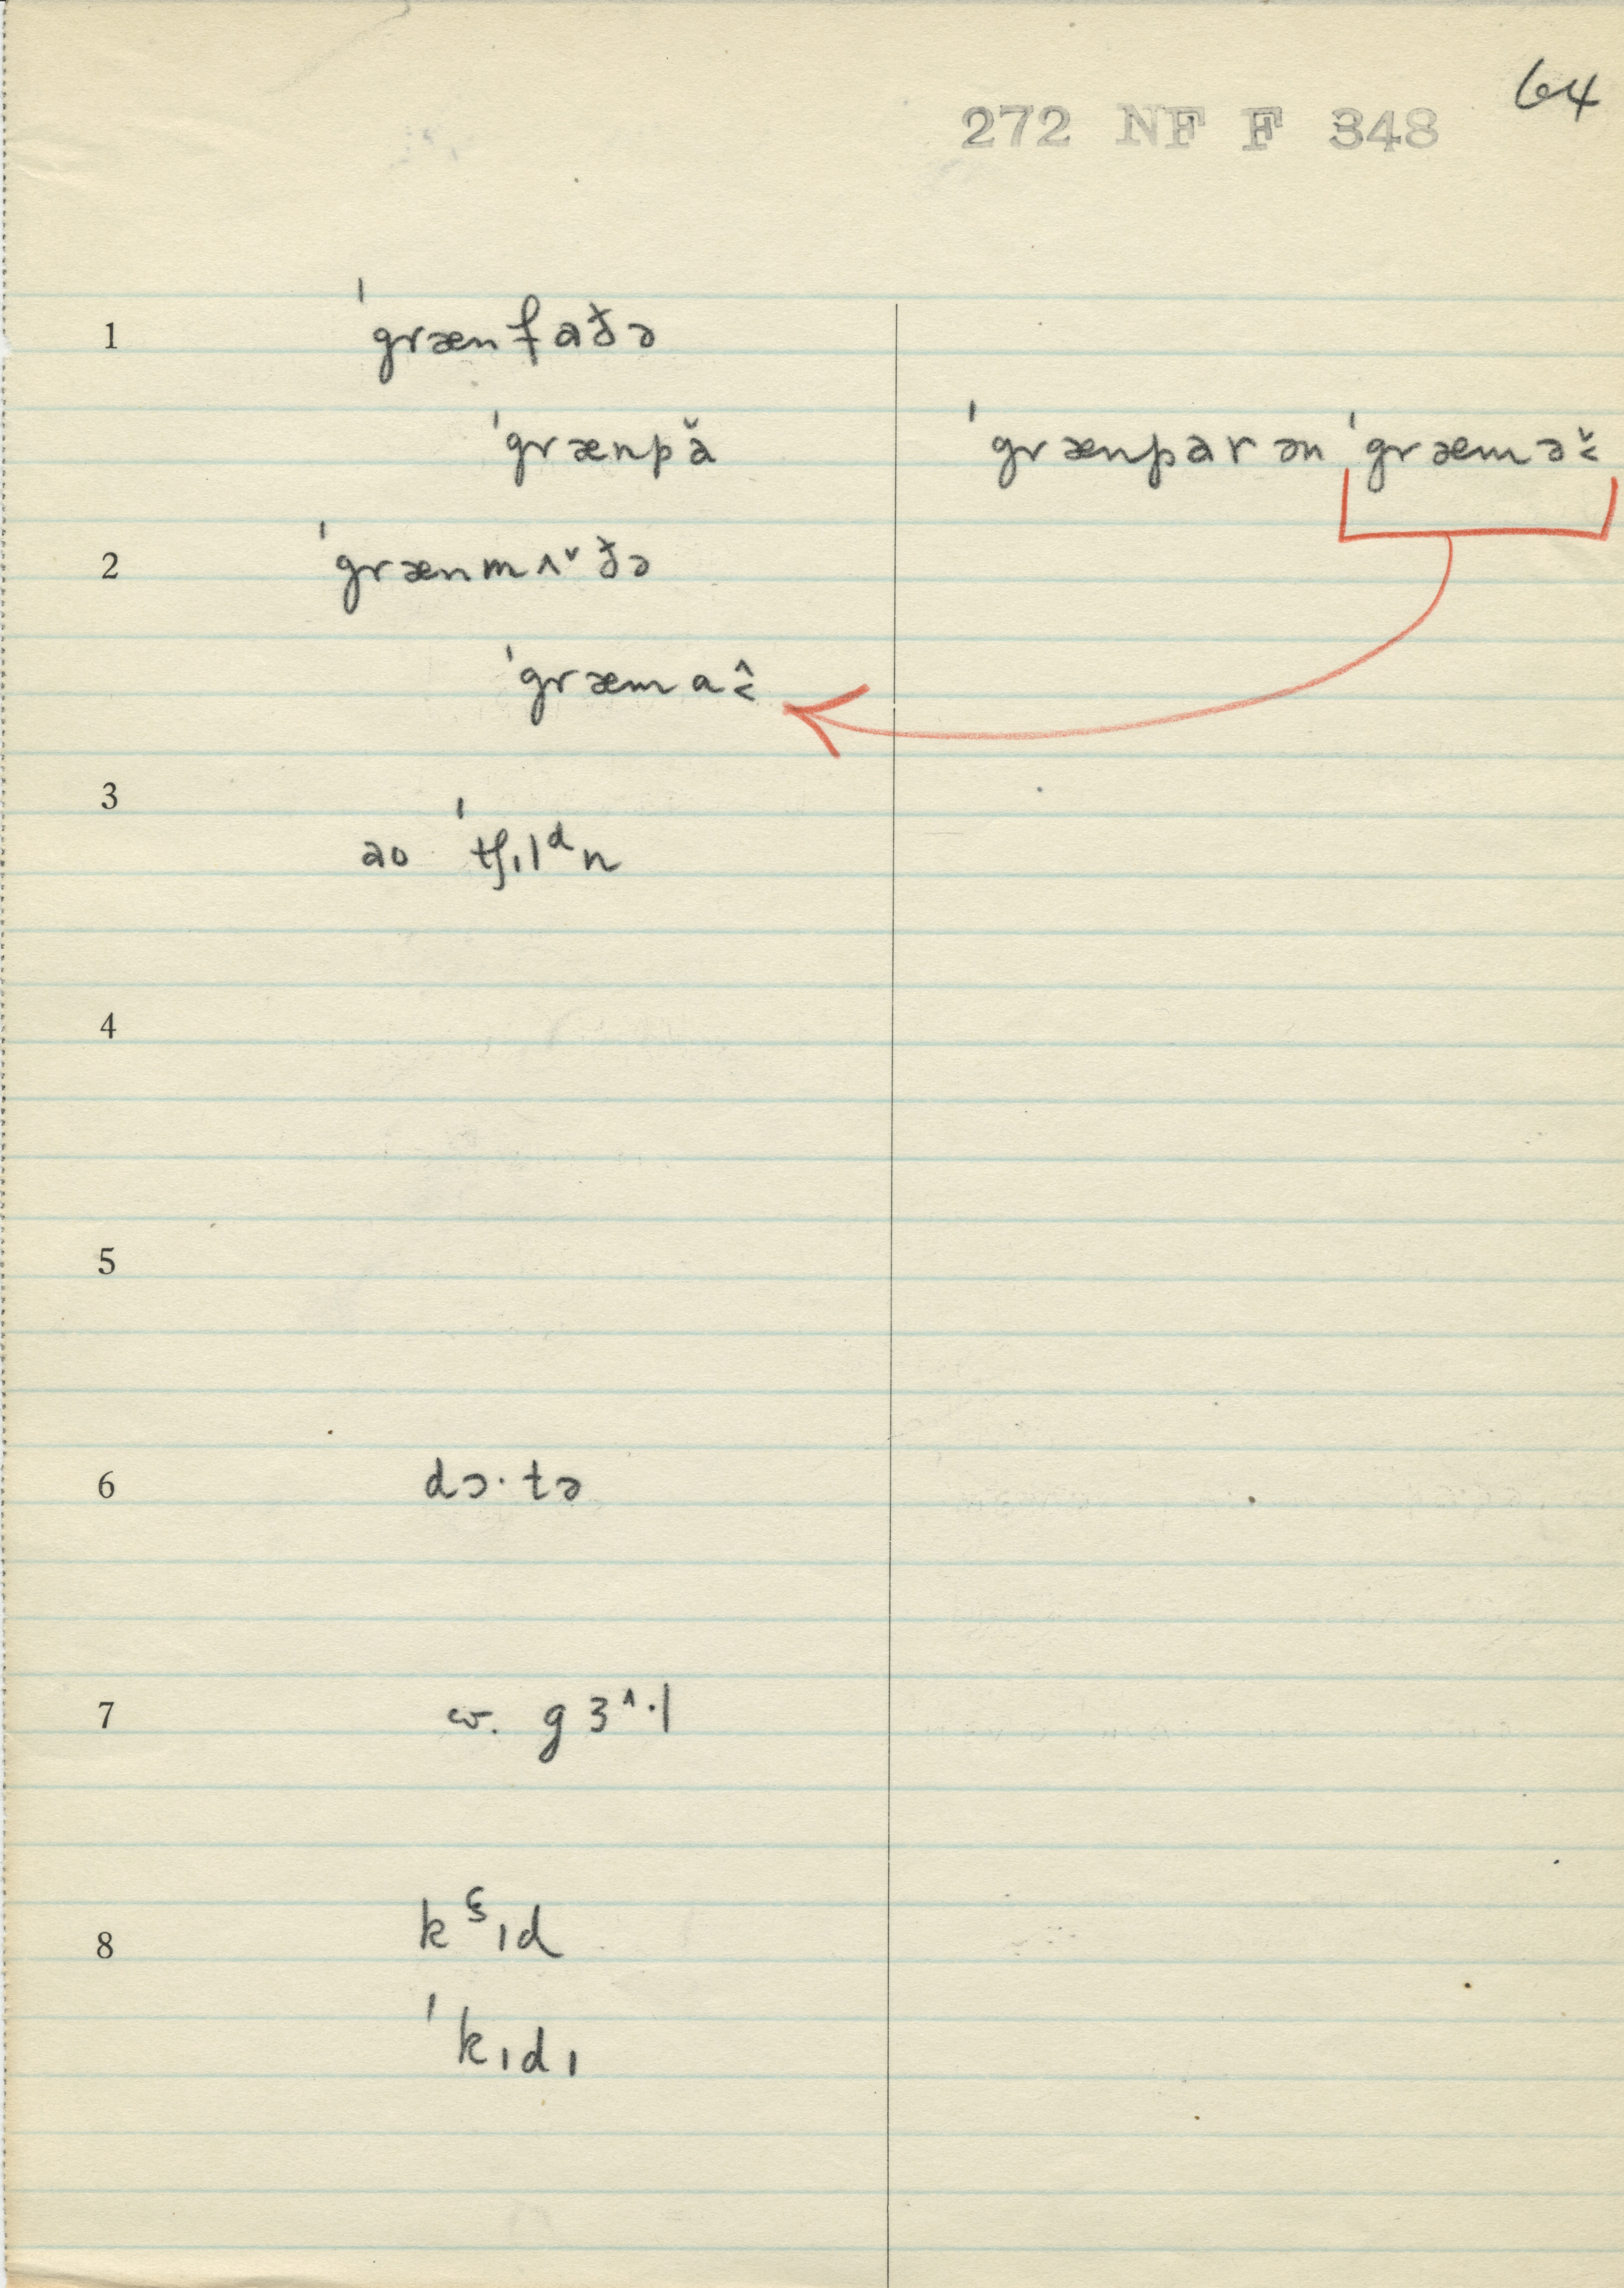 64
272 NF F 348
1 ˈgrænfaðə
ˈgrænpǎ ˈgrænparən ˈgræməˇ˂
2 ˈgrænmʌˇðə
ˈgræmaˆ˂
3
ao ˈtʃɪlᵈn
4
5
6 dɔ·tə
7 w. gɜ^·l
8 kʕɪd
ˈkɪdɪ